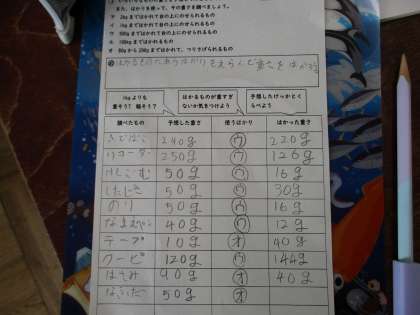 また、はかりを使って、その重さを調べましょう。
ア 2kgまではかれて台の上にのせられるもの
イ 4kgまではかれて台の上にのせられるもの
ウ 500gまではかれて台の上にのせられるもの
エ 100kgまではかれて台の上にのせられるもの
オ 50gから200gまではかれて、つり下げられるもの
はかりをえらんで重さをはかる
1kgよりも重そう？軽そう？
はかるものが重すぎないか気をつけよう
予想したけっかとくらべよう
調べたもの 予想した重さ 使うはかり はかった重さ
ふでばこ 240g ウ 220g
リコーダー 250g ウ 126g
けしごむ 50g ウ 16g
したじき 50g ウ 30g
のり 50g ウ 16g
なまえペン 40g ウ 12g
テープ 10g オ 40g
クーピー 120g ウ 144g
はさみ 90g オ 40g
50g オ